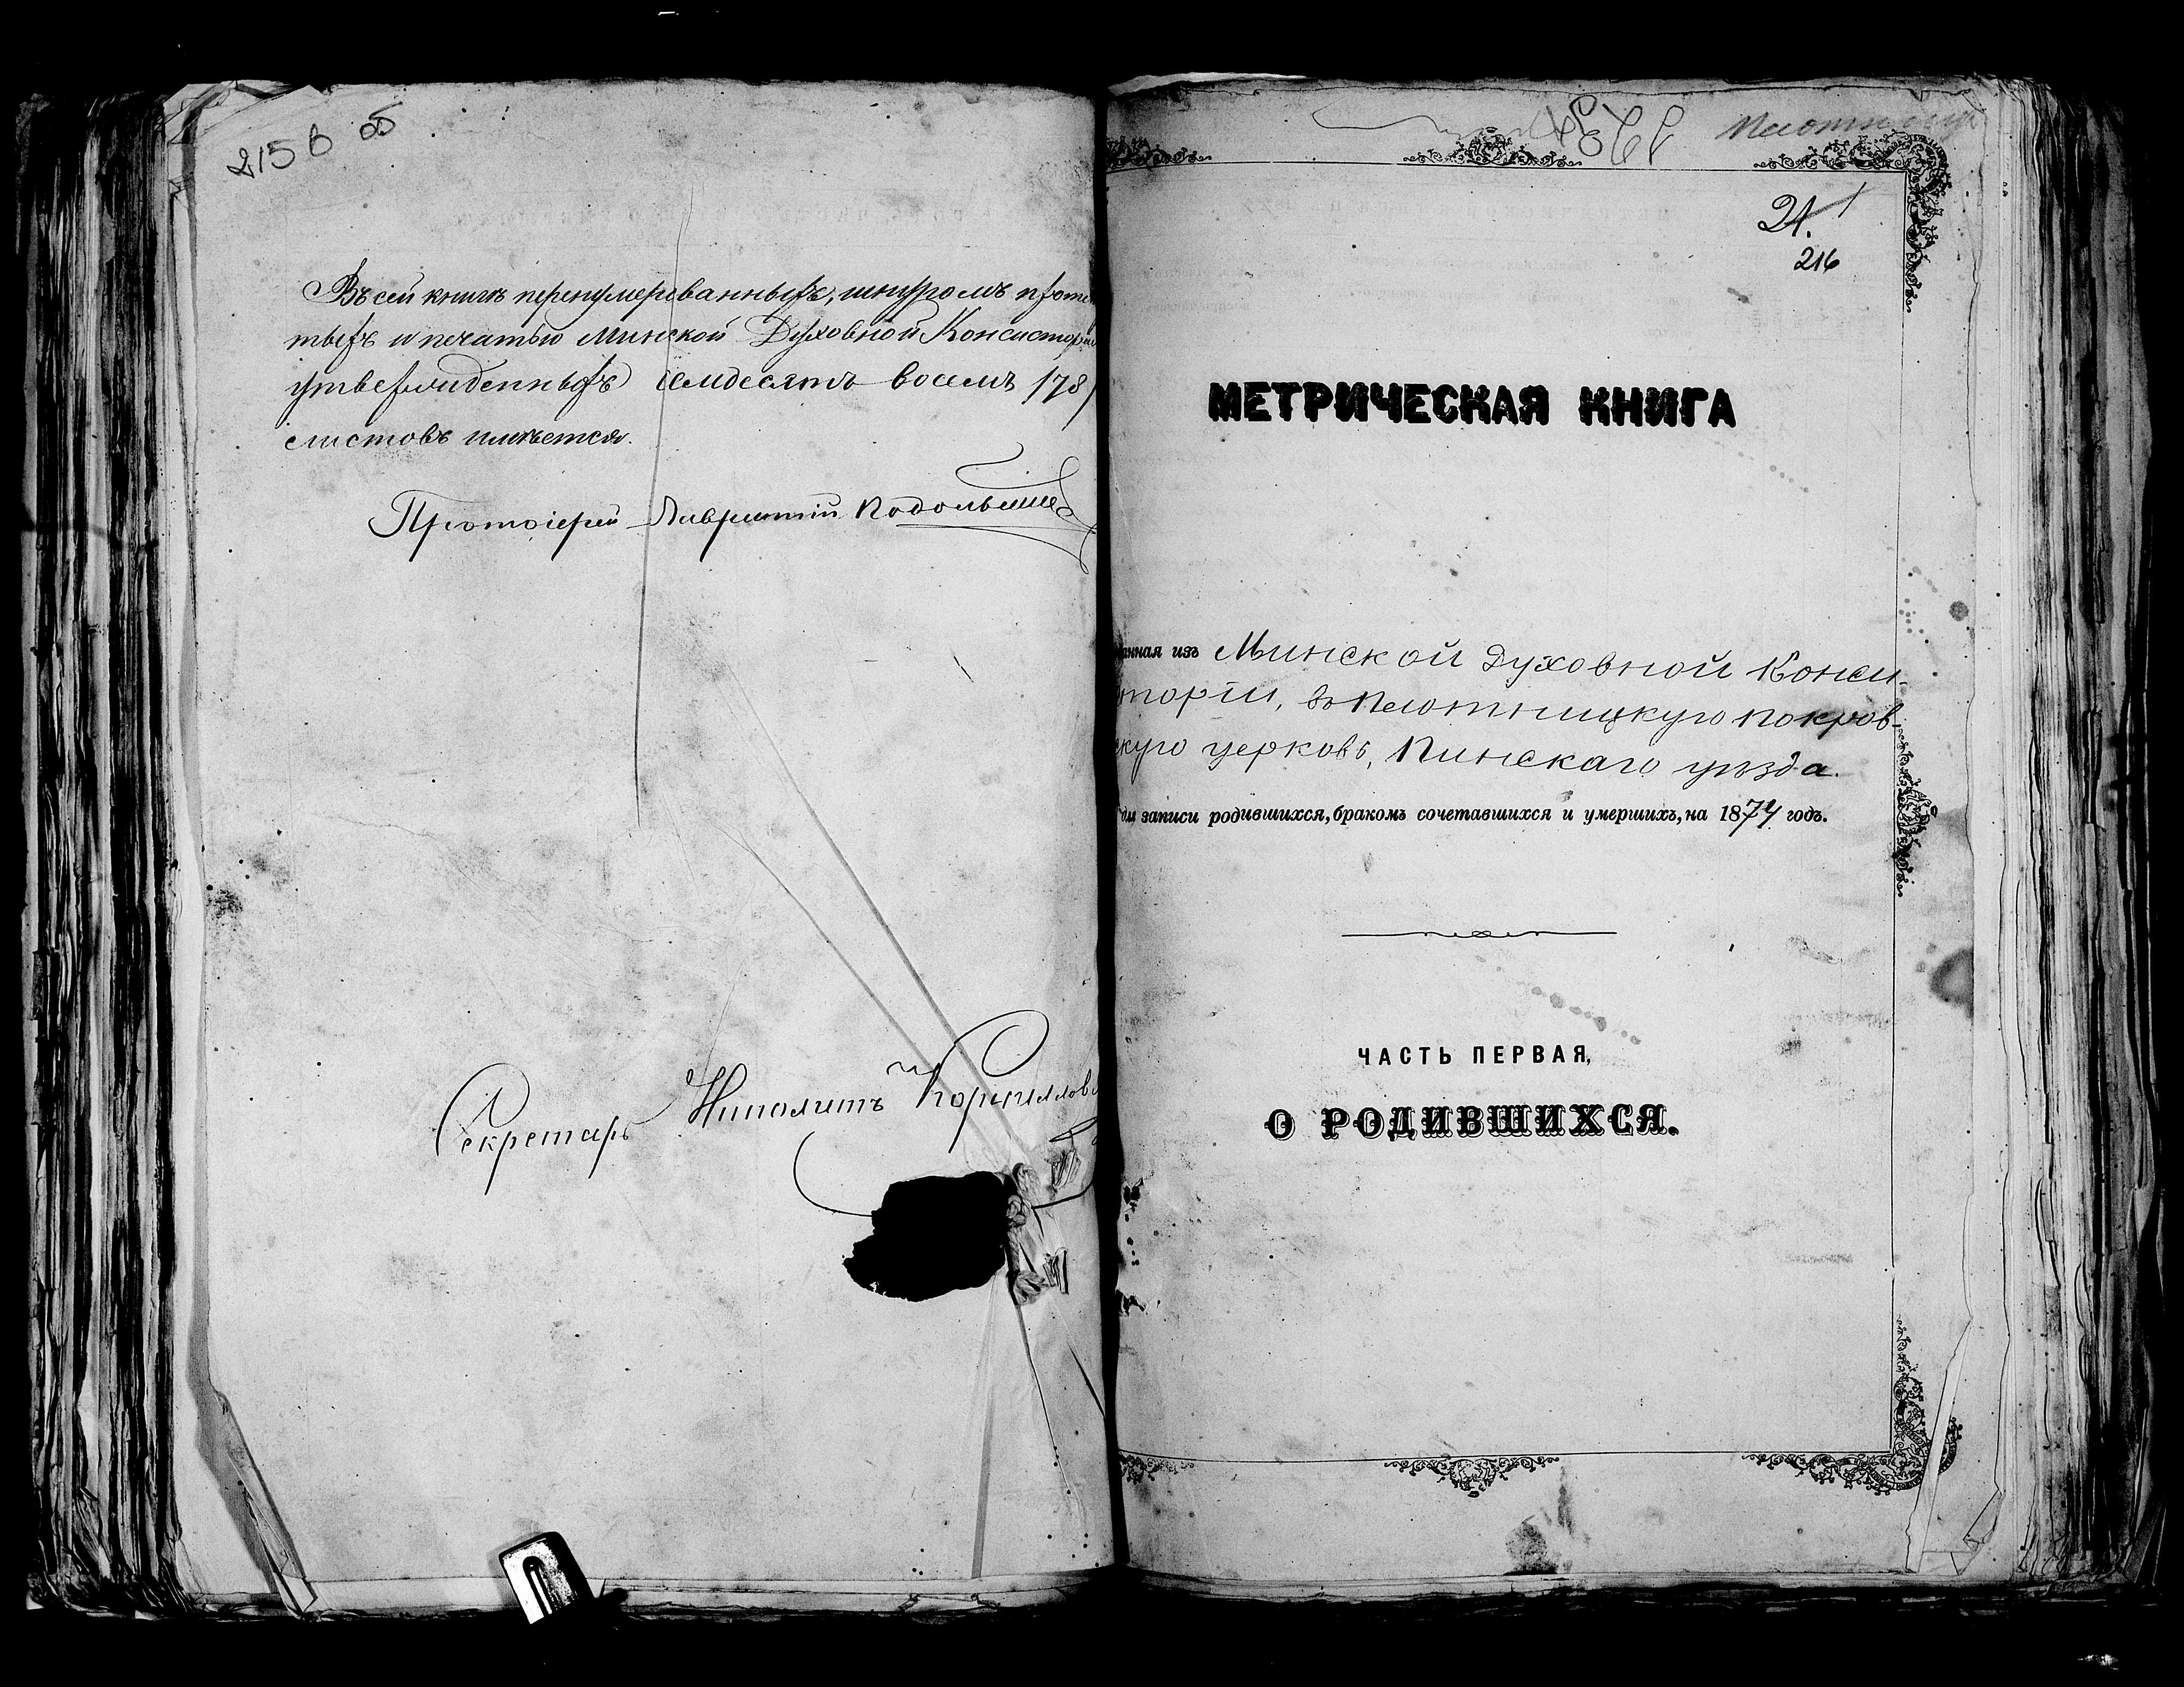 215 в об
Въ сей книгѣ перенумерованныхъ, шнуромъ
тыхъ и печатью Минской Духовной Консистор
утвержденныхъ семдесятъ восемъ /78/
листовъ имѣется.
Протоіерей Лаврентій
Секретарь Ипполитъ
21. 1
216
МЕТРИЧЕСКАЯ КНИГА
анная изъ Минской Духовной Конси-
торіи, въ Плотницкую Покров-
скую церковь, Пинскаго уѣзда.
записи родившихся, бракомъ сочетавшихся и умершихъ, на 1874 годъ.
ЧАСТЬ ПЕРВАЯ,
О РОДИВШИХСЯ.